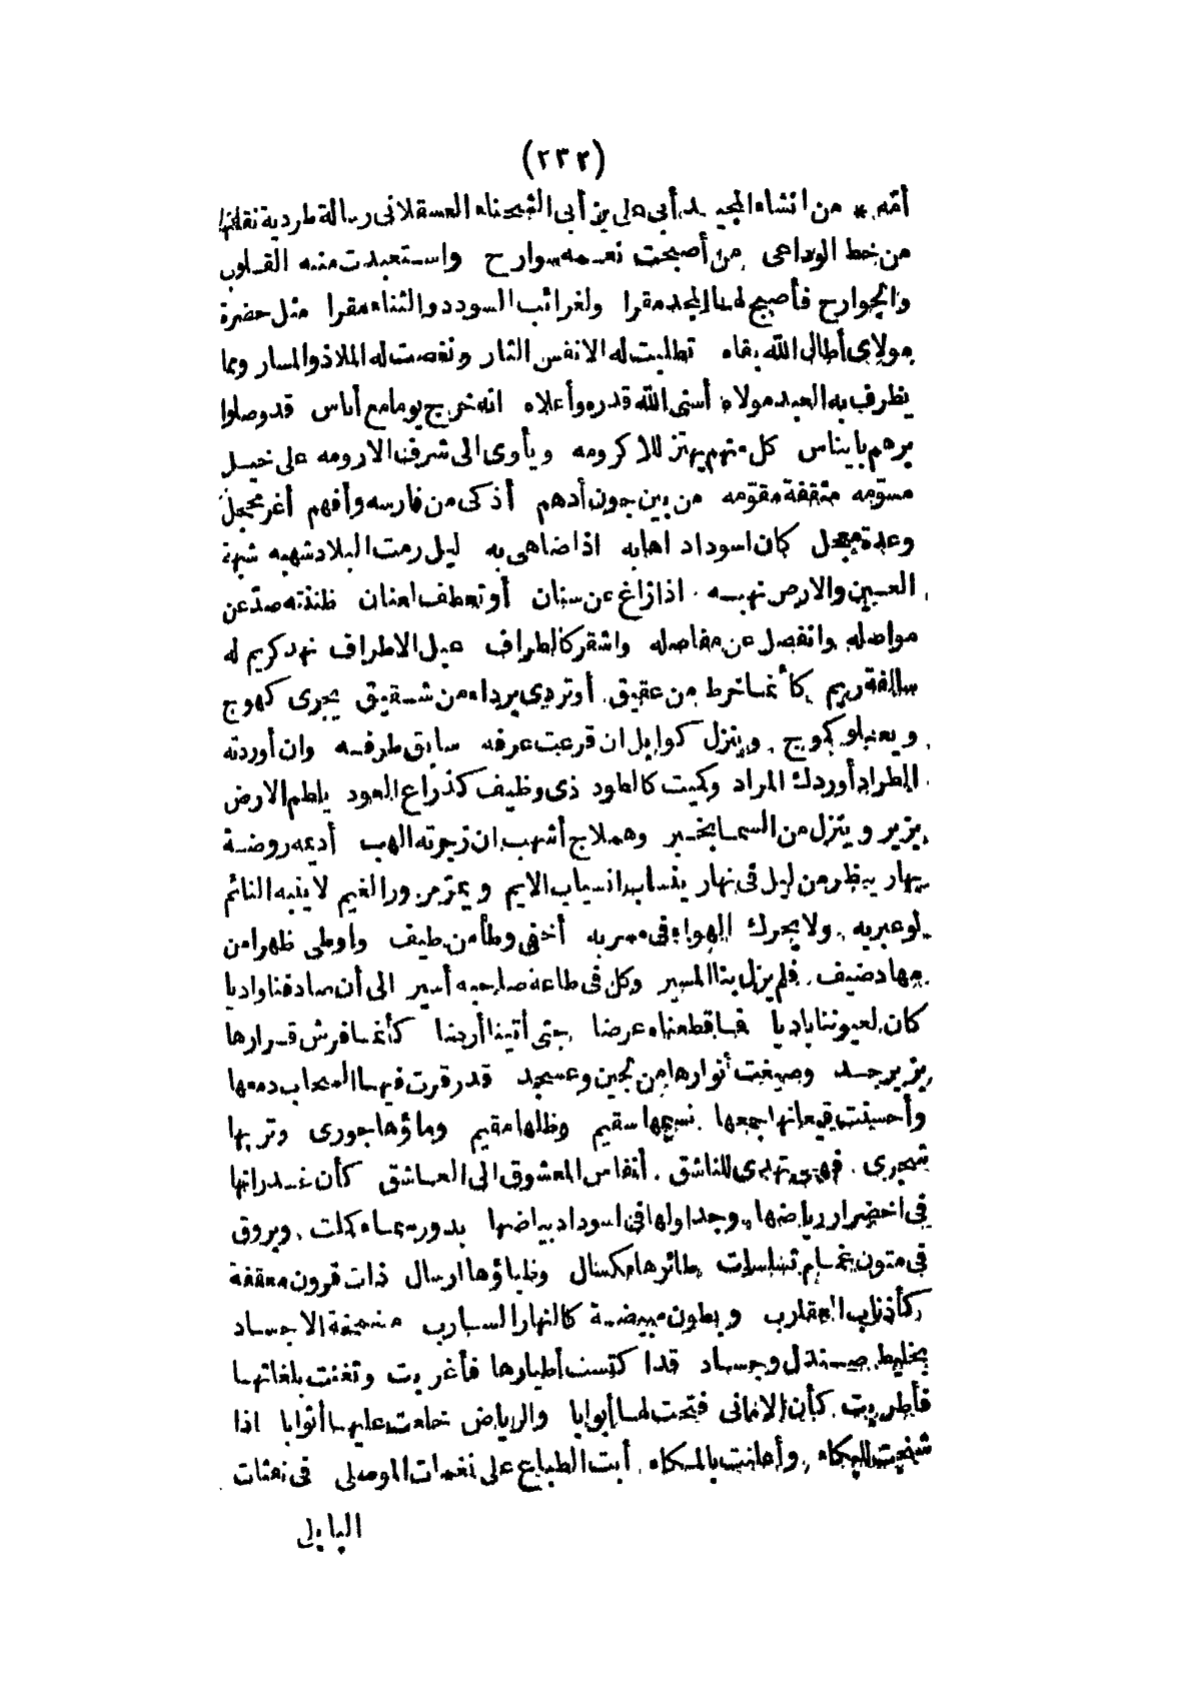 (٢٣٢)
أمّه * من انشاء المجيد أبي على بن أبى الشخناء العسقلانى رسالة طردية نقلتها
من خط الوداعى من أصبحت نعمه سوارح واستعبدت مننه القلوب
والجوارح فأصبح لهنا المجد مقرا ولغرائب السودد والثناء مقرا مثل حضرة
مولاى أطال الله بقاه تطلبت له الانفس الثار ونغصت له الملاذ والمسار ومما
يظرف به العبد مولاه أسنى الله قدره وأعلاه انه خرج يوما مع أناس قد وصلوا
برهم بايناس كل منهم يهتز للاكرومه ويأوى الى شرف الارومه على خيل
مسوّمه مثقفة مقوّمه من بين جون أدهم أذكى من فارسه وأفهم أغر محجل
وعدة معجل كان اسوداد اهابه اذا ضاهى به ليل رمت البلاد شهبه شهرة
العين والارض نهبه اذا زاغ عن سنان أو تعطف لعنان ظننته صدّ عن
مواصله وانفصل عن مفاصله واشقر كالطراف عبل الاطراف نهد كريم له
سالفة ريم كأنما خرط من عقيق أو تردى برداء من شقيق يجرى كهوج
ويعنلو كموج وينزل كوابل ان قرعت عرفه سابق طرفه وان أوردته
الطراد أوردك المراد وكميت كالطود ذى وظيف كذراع العود يلطم الارض
بزبر وينزل من السما بخبر وهملاج أشهب ان زجرته الهب أديمه روضة
بهار ينظر من ليل فى نهار ينساب انسياب الايم ويمر مرور الغيم لا ينبه النائم
لو عبر به ولا يحرك الهواء فى مسربه أخفى وطأ من طيف واوطى ظهرا من
مهاد ضيف فلم يزل بنا المسير وكل فى طاعة صاحبه أسير الى أن صادفنا واديا
كان لعيوننا باديا فما قطعناه عرضا حتى أتينا أرضا كأنما فرش قرارها
بزبرجد وصيغت أنوارها من لجين وعسجد قد رقت فيها السحاب دمعها
وأحسنت قيعانها جمعها نسيمها سقيم وظلها مقيم وماؤها جورى وتربها
شحرى فهى تهدى للناشق أنفاس المعشوق الى العاشق كأن غدرانها
فى اخضرار رياضها وجداولها فى اسوداد بياضها بدور سماء كملت وبروق
فى متون غمام تسلسلت طائرها مكسال وظباؤها ارسال ذات قرون معقفة
كأذناب العقارب وبطون مبيضة كالنهار السارب منضخة الاجساد
بخليط صندل وجساد قد اكتست أطيارها فأغربت وتغنت بلغاتها
فأطربت كأن الامانى فتحت لها أبوابا والرياض خلعت عليها أثوابا اذا
شجت للبكاء وأعلنت بالمكاء أبت الطباع على نغمات الموصلى فى نعثات
البابلى